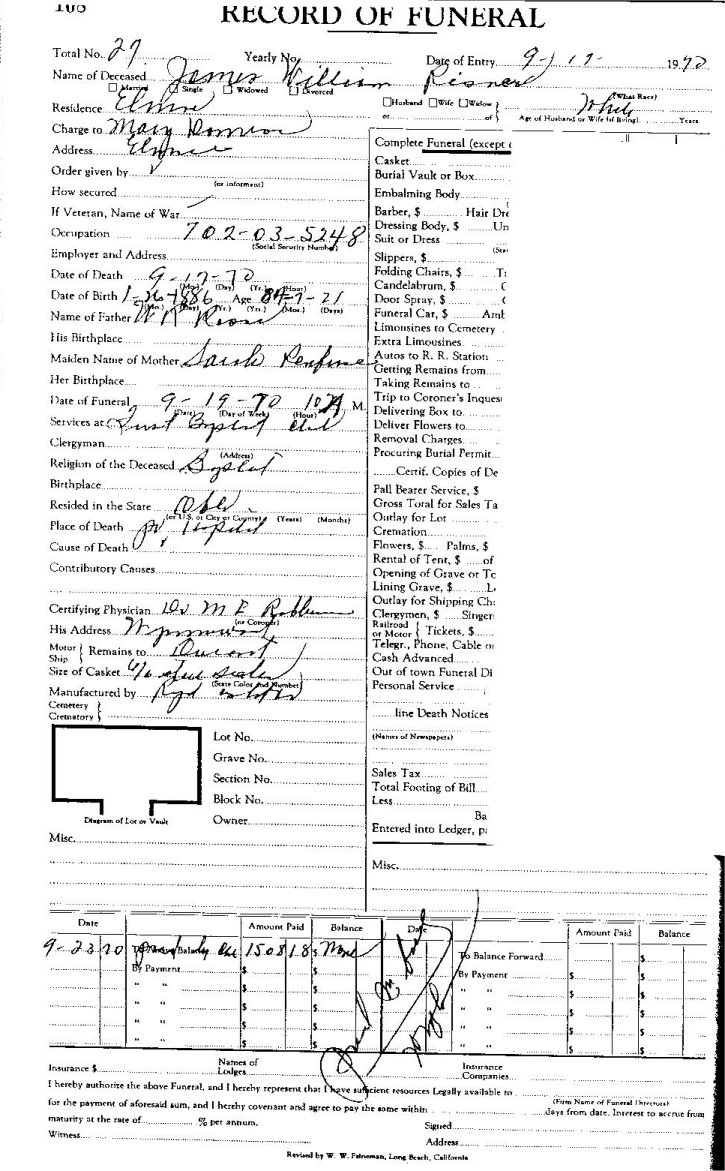 RECORD OF FUNERAL
Total No. 27 Yearly No. Date of Entry 9-17- 1970
Name of Deceased James William Risner
Married Single Widowed Divorced
(What Race) White
Residence Elmore
Husband Wife Widow
or of Age of Husband or Wife (if living) Years
Charge to Mary
Address Elmore
Order given by
(or informant)
How secured
If Veteran, Name of War
Occupation 702-03-5248
(Social Security Number)
Employer and Address
Date of Death 9-17-70
(Mo.) (Day) (Yr.) (Hour)
Date of Birth 1-26-1886 Age 84-7-21
(Mo.) (Day) (Yr.) (Yrs.) (Mos.) (Days)
Name of Father
His Birthplace
Maiden Name of Mother Sarah
Her Birthplace
Date of Funeral 9-19-70 10 A. M.
(Date) (Day of Week) (Hour)
Services at First Baptist
Clergyman
(Address)
Religion of the Deceased Baptist
Birthplace
Resided in the State Okla
(or U.S. or City or County) (Years) (Months)
Place of Death Hospital
Cause of Death
Contributory Causes
Certifying Physician Dr M E
(or Coroner)
His Address Wynnewood
Motor Ship Remains to Durant
Size of Casket 6/6 Sealer
(State Color and Number)
Manufactured by
Cemetery
Crematory
Lot No.
Grave No.
Section No.
Block No.
Owner
Diagram of Lot or Vault
Misc.
Complete Funeral (except
Casket
Burial Vault or Box
Embalming Body
Barber, $ Hair Dre
Dressing Body, $ Un
Suit or Dress
Slippers, $
Folding Chairs, $
Candelabrum, $
Door Spray, $
Funeral Car, $ Amb
Limousines to Cemetery
Extra Limousines
Autos to R. R. Station
Getting Remains from
Taking Remains to
Trip to Coroner's Inques
Delivering Box to
Deliver Flowers to
Removal Charges
Procuring Burial Permit
Certif. Copies of De
Pall Bearer Service, $
Gross Total for Sales Ta
Outlay for Lot
Cremation
Flowers, $ Palms, $
Rental of Tent, $ of
Opening of Grave or To
Lining Grave, $
Outlay for Shipping Ch
Clergymen, $ Singer
Railroad or Motor Tickets, $
Telegr., Phone, Cable or
Cash Advanced
Out of town Funeral Di
Personal Service
line Death Notices
(Names of Newspapers)
Sales Tax
Total Footing of Bill
Less
Ba
Entered into Ledger, p
Misc.
Date Amount Paid Balance Date Amount Paid Balance
9-23-70 1508 18 None To Balance Forward $
By Payment $ By Payment $
" " $ " " $
" " $ " " $
" " $ " " $
" " $ " " $
Insurance $ Names of Lodges Insurance Companies
I hereby authorize the above Funeral, and I hereby represent that I have sufficient resources Legally available to
(Firm Name of Funeral Directors)
for the payment of aforesaid sum, and I hereby covenant and agree to pay the same within days from date. Interest to accrue from
maturity at the rate of % per annum. Signed
Witness Address
Revised by W. W. Feineman, Long Beach, California